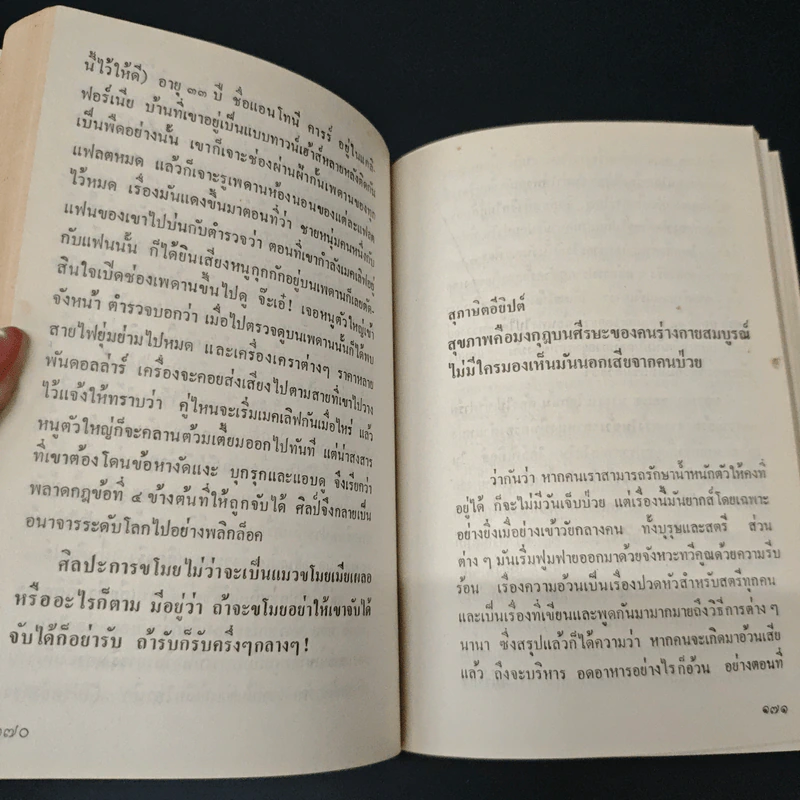 นี้ไว้ให้ดี) อายุ ๓๓ ปี ชื่อแอนโทนี คารร์ อยู่ในแคลิ-
ฟอร์เนีย บ้านที่เขาอยู่เป็นแบบทาวน์เฮ้าส์หลายหลังติดกัน
เป็นพืดอย่างนั้น เขาก็เจาะช่องผ่านฝ้ากั้นเพดานของทุก
แฟลตหมด แล้วก็เจาะรูเพดานห้องนอนของแต่ละแฟลต
ไว้หมด เรื่องมันแดงขึ้นมาตอนที่ว่า ชายหนุ่มคนหนึ่งกับ
แฟนของเขาไปบ่นกับตำรวจว่า ตอนที่เขากำลังเมคเลิฟอยู่
กับแฟนนั้น ก็ได้ยินเสียงหนูกุกกักอยู่บนเพดานก็เลยตัด-
สินใจเปิดช่องเพดานขึ้นไปดู จ๊ะเอ๋! เจอหนูตัวใหญ่เข้า
จังหน้า ตำรวจบอกว่า เมื่อไปตรวจดูบนเพดานนั้นก็ได้พบ
สายไฟยุ่มย่ามไปหมด และเครื่องเคราต่างๆ ราคาหลาย
พันดอลล่าร์ เครื่องจะคอยส่งเสียงไปตามสายที่เขาไปวาง
ไว้แจ้งให้ทราบว่า คู่ไหนจะเริ่มเมคเลิฟกันเมื่อไหร่ แล้ว
หนูตัวใหญ่ก็จะคลานต้วมเตี้ยมออกไปทันที แต่น่าสงสาร
ที่เขาต้องโดนข้อหางัดแงะ บุกรุกและแอบดู จึงเรียกว่า
พลาดกฎข้อที่ ๔ ข้างต้นที่ให้ถูกจับได้ ศิลป์จึงกลายเป็น
อนาจารระดับโลกไปอย่างพลิกล็อค
ศิลปะการขโมยไม่ว่าจะเป็นแมวขโมยเมียเผลอ
หรืออะไรก็ตาม มีอยู่ว่า ถ้าจะขโมยอย่าให้เขาจับได้
จับได้ก็อย่ารับ ถ้ารับก็รับครึ่งๆกลางๆ!
๑๗๐
สุภาษิตอียิปต์
สุขภาพคือมงกุฎบนศีรษะของคนร่างกายสมบูรณ์
ไม่มีใครมองเห็นมันนอกเสียจากคนป่วย
ว่ากันว่า หากคนเราสามารถรักษาน้ำหนักตัวให้คงที่
อยู่ได้ ก็จะไม่มีวันเจ็บป่วย แต่เรื่องนี้มันยากส์โดยเฉพาะ
อย่างยิ่งเมื่อย่างเข้าวัยกลางคน ทั้งบุรุษและสตรี ส่วน
ต่าง ๆ มันเริ่มฟูมฟายออกมาด้วยจังหวะทวีคูณด้วยความรีบ
ร้อน เรื่องความอ้วนเป็นเรื่องปวดหัวสำหรับสตรีทุกคน
และเป็นเรื่องที่เขียนและพูดกันมามากมายถึงวิธีการต่าง ๆ
นานา ซึ่งสรุปแล้วก็ได้ความว่า หากคนจะเกิดมาอ้วนเสีย
แล้ว ถึงจะบริหาร อดอาหารอย่างไรก็อ้วน อย่างตอนที่
๑๗๑